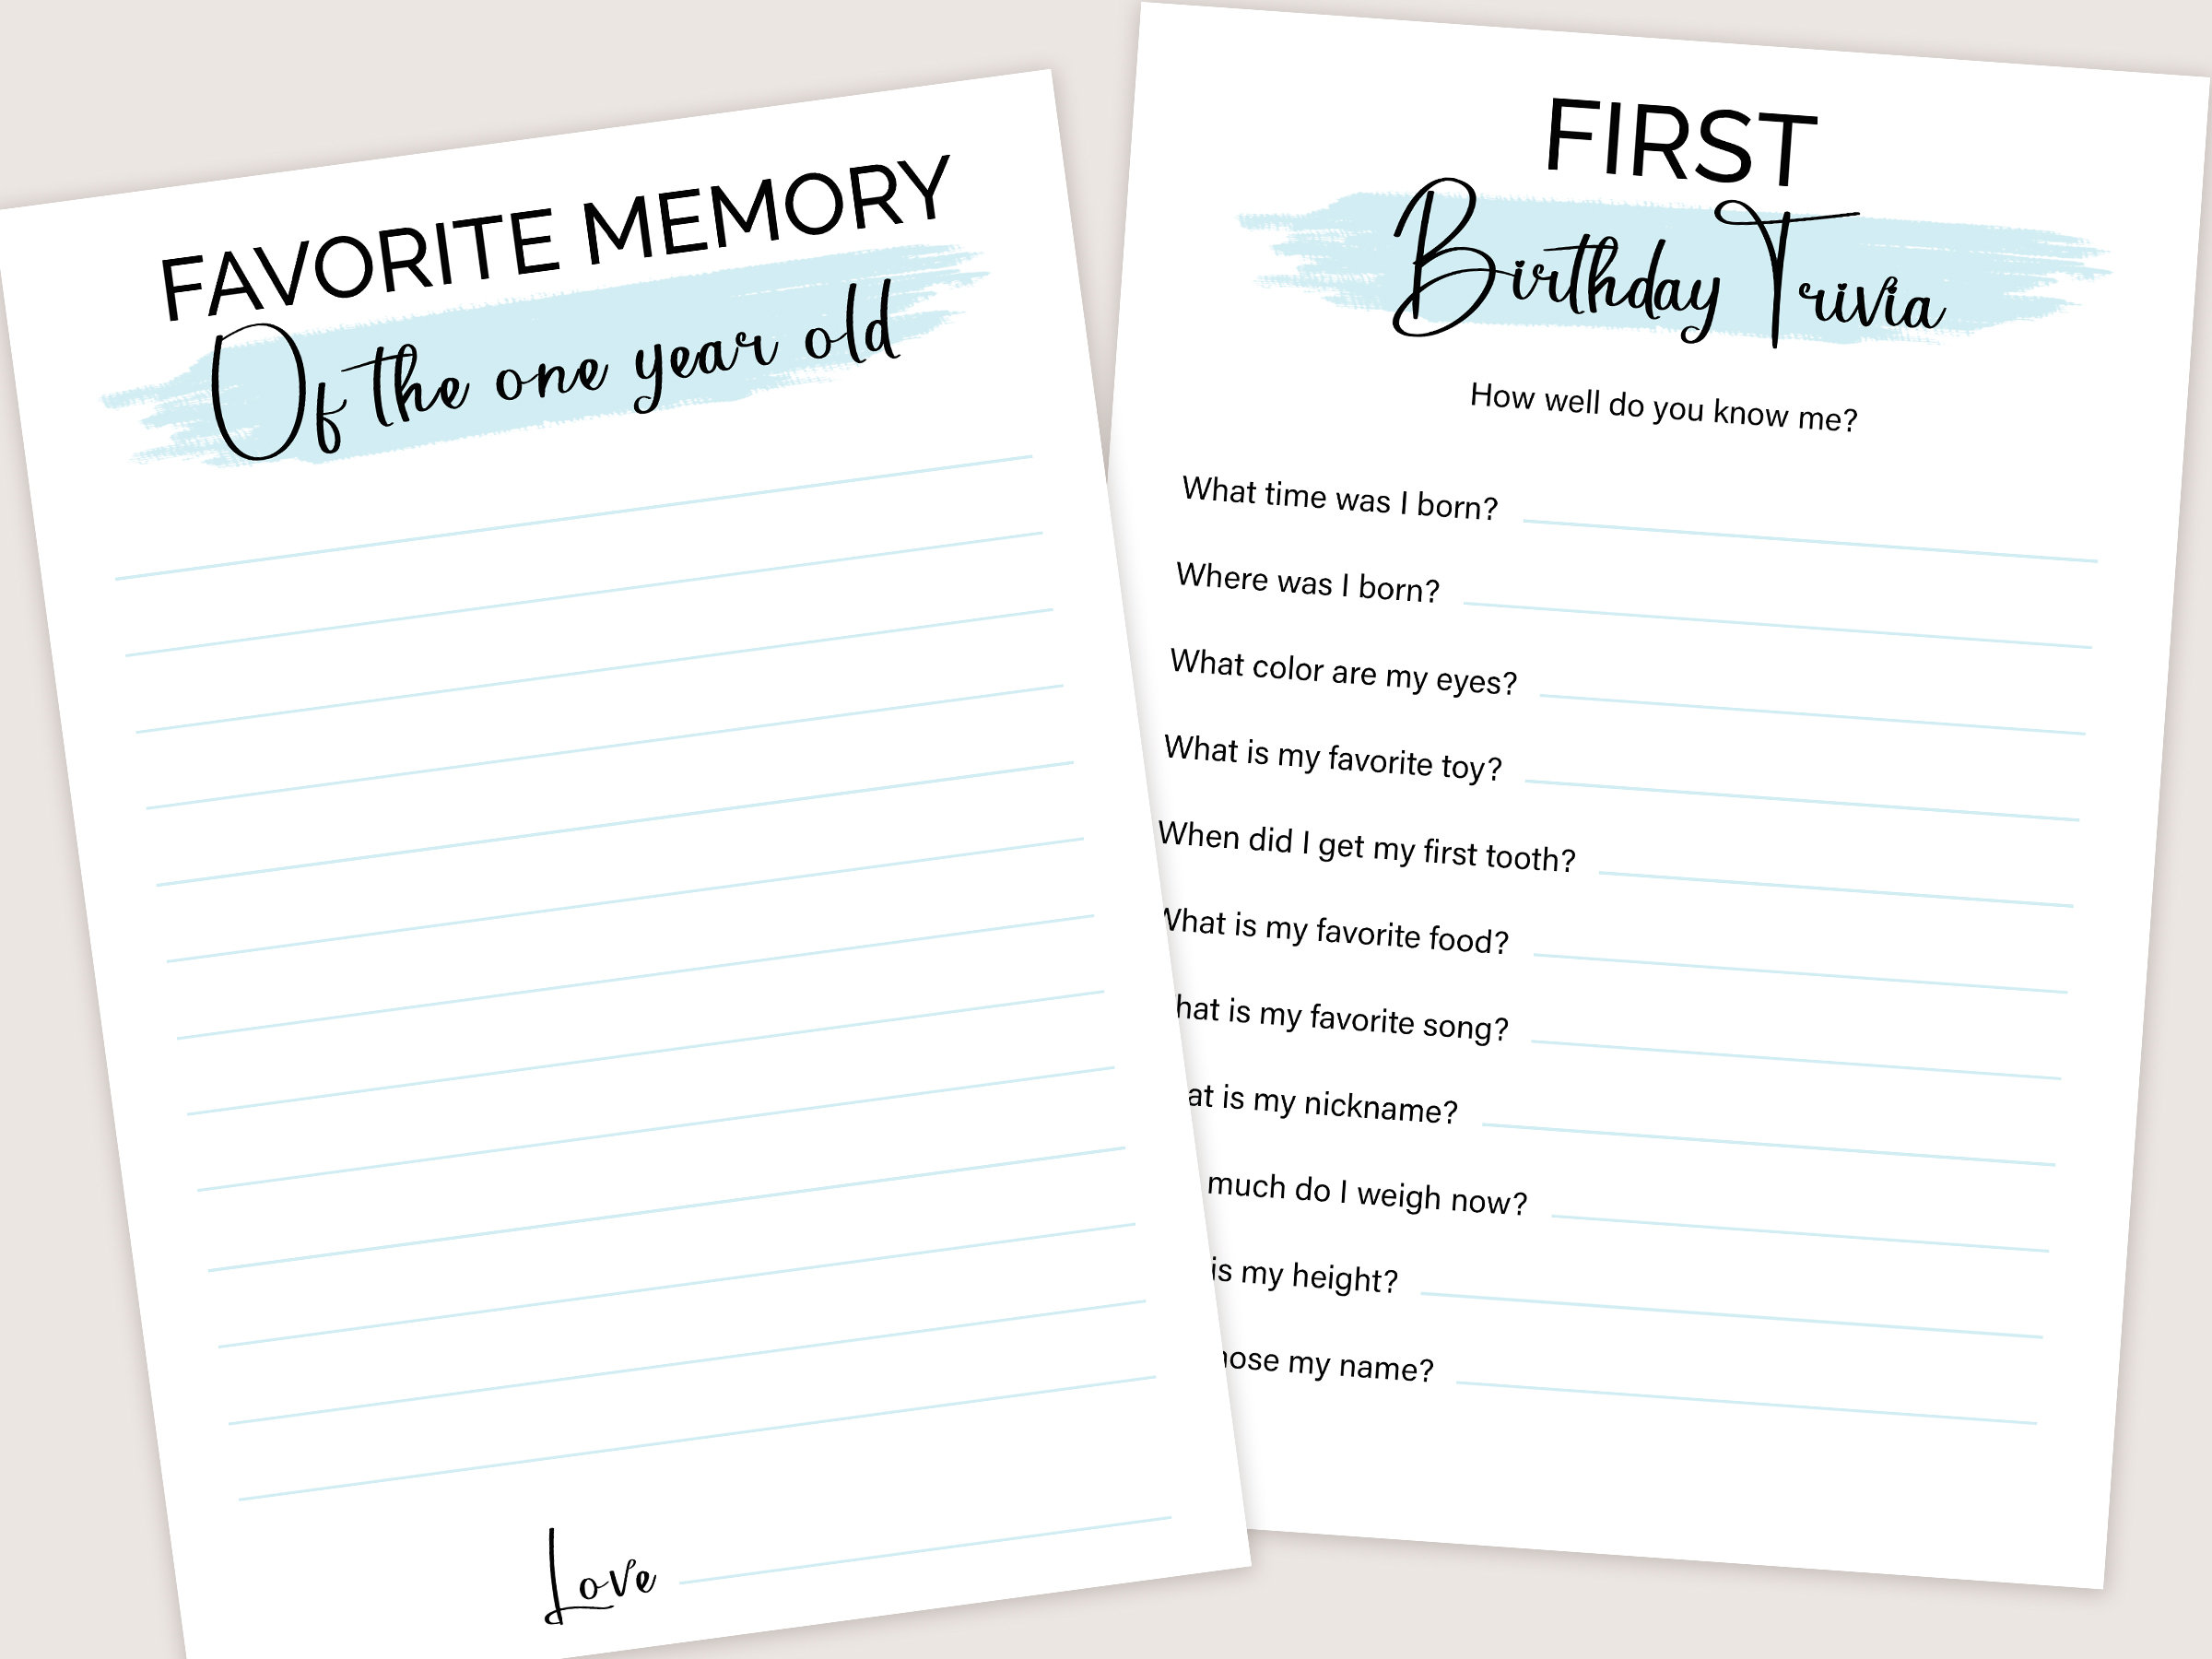 FAVORITE MEMORY
Of the one year old
Love
FIRST
Birthday Trivia
How well do you know me?
What time was I born?
Where was I born?
What color are my eyes?
What is my favorite toy?
When did I get my first tooth?
What is my favorite food?
hat is my favorite song?
at is my nickname?
much do I weigh now?
is my height?
hose my name?